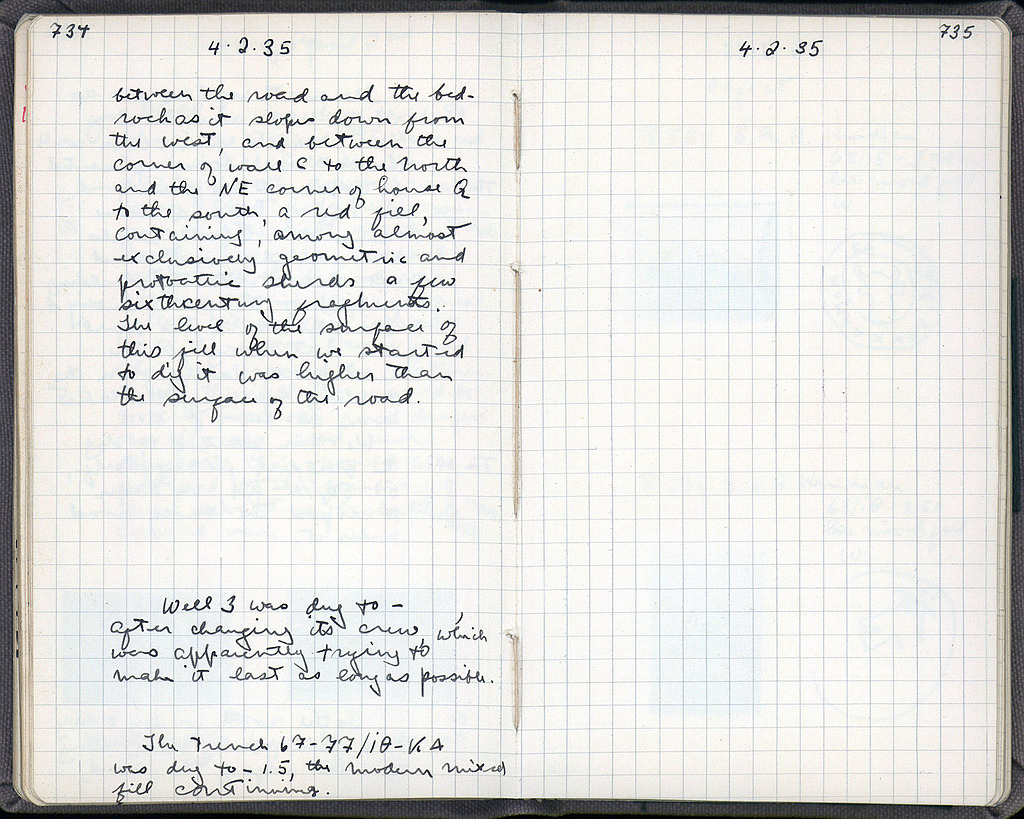 734
4·2·35
between the road and the bed-
rock as it slopes down from
the west, and between the
corner of wall C to the north
and the NE corner of house Q
to the south, a red fill,
containing, among almost
exclusively geometric and
protoattic sherds a few
sixthcentury fragments.
The level of the surface of
this fill when we started
to dig it was higher than
the surface of the road.
Well 3 was dug to –
after changing its crew, which
was apparently trying to
make it last as long as possible.
The trench 67-77/ΙΘ-ΚΔ
was dug to -1.5, the modern mixed
fill continuing.
735
4·2·35